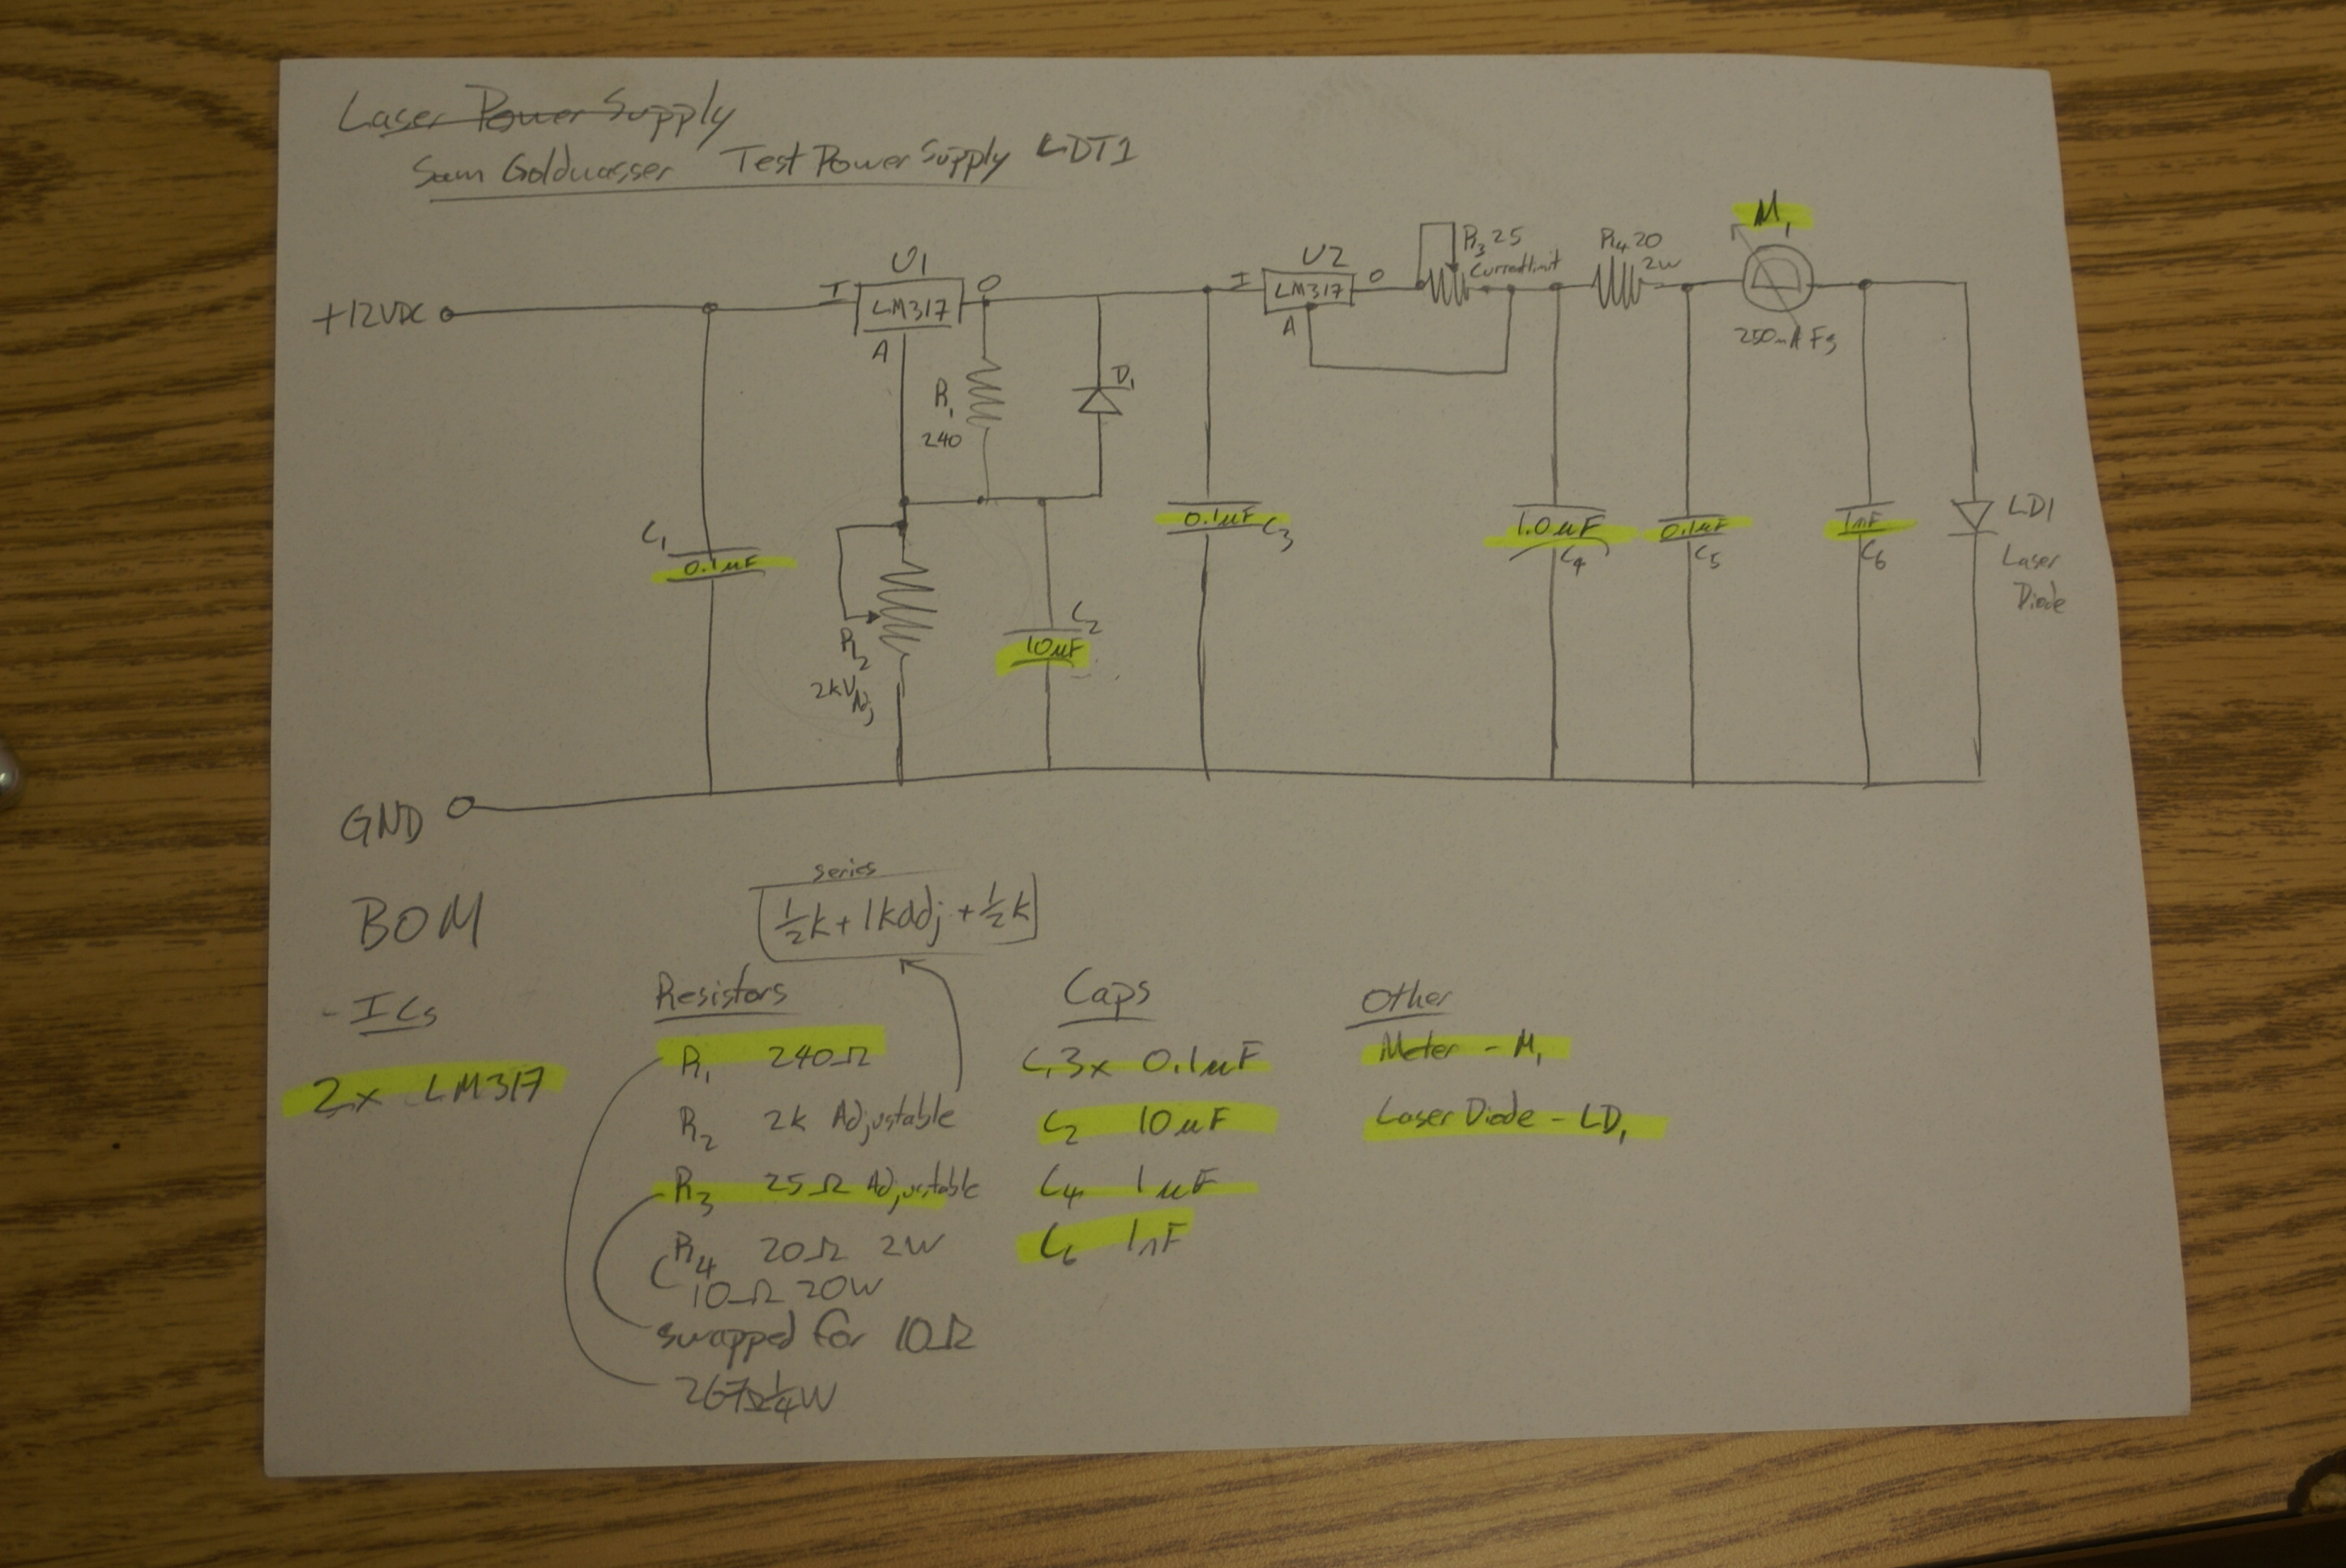 Laser Power Supply
Sam Goldwasser Test Power Supply LDT1
+12VDC
I
U1
O
LM317
A
R1
240
D1
I
U2
O
LM317
A
R3 25
Current limit
R4 20
2W
M1
250mA Fs
C1
0.1µF
R2
2k VAdj
C2
10µF
0.1µF C3
1.0µF
C4
0.1µF
C5
1nF
C6
LD1
Laser
Diode
GND
BOM
series
½k + 1k adj + ½k
- ICs
2x LM317
Resistors
R1 240Ω
R2 2k Adjustable
R3 25Ω Adjustable
R4 20Ω 2W
10Ω 20W
swapped for 10Ω
267Ω ¼W
Caps
C, 3x 0.1µF
C2 10µF
C4 1µF
C6 1nF
Other
Meter - M1
Laser Diode - LD1